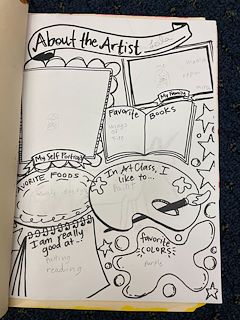 About the Artist
me
My Family
Favorite
BOOKS
wings
of
fire
My Self Portrait
FAVORITE FOODS
In Art Class, I
like to...
Paint
I am really
good at...
reading
favorite
COLORS
purple